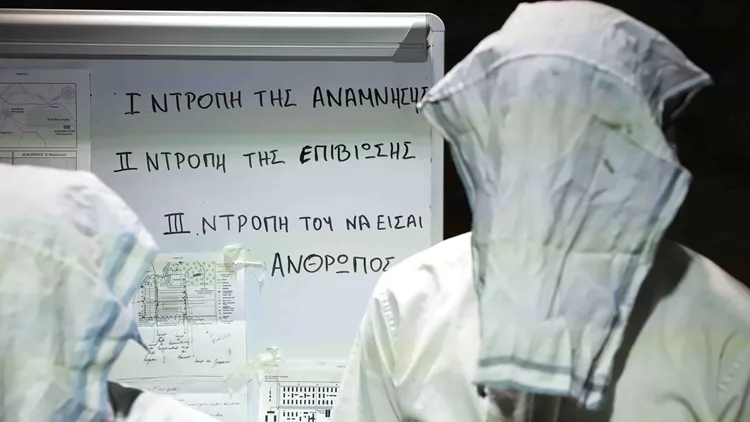 I ΝΤΡΟΠΗ ΤΗΣ ΑΝΑΜΝΗΣΗΣ
II ΝΤΡΟΠΗ ΤΗΣ ΕΠΙΒΙΩΣΗΣ
III. ΝΤΡΟΠΗ ΤΟΥ ΝΑ ΕΙΣΑΙ
ΑΝΘΡΩΠΟΣ